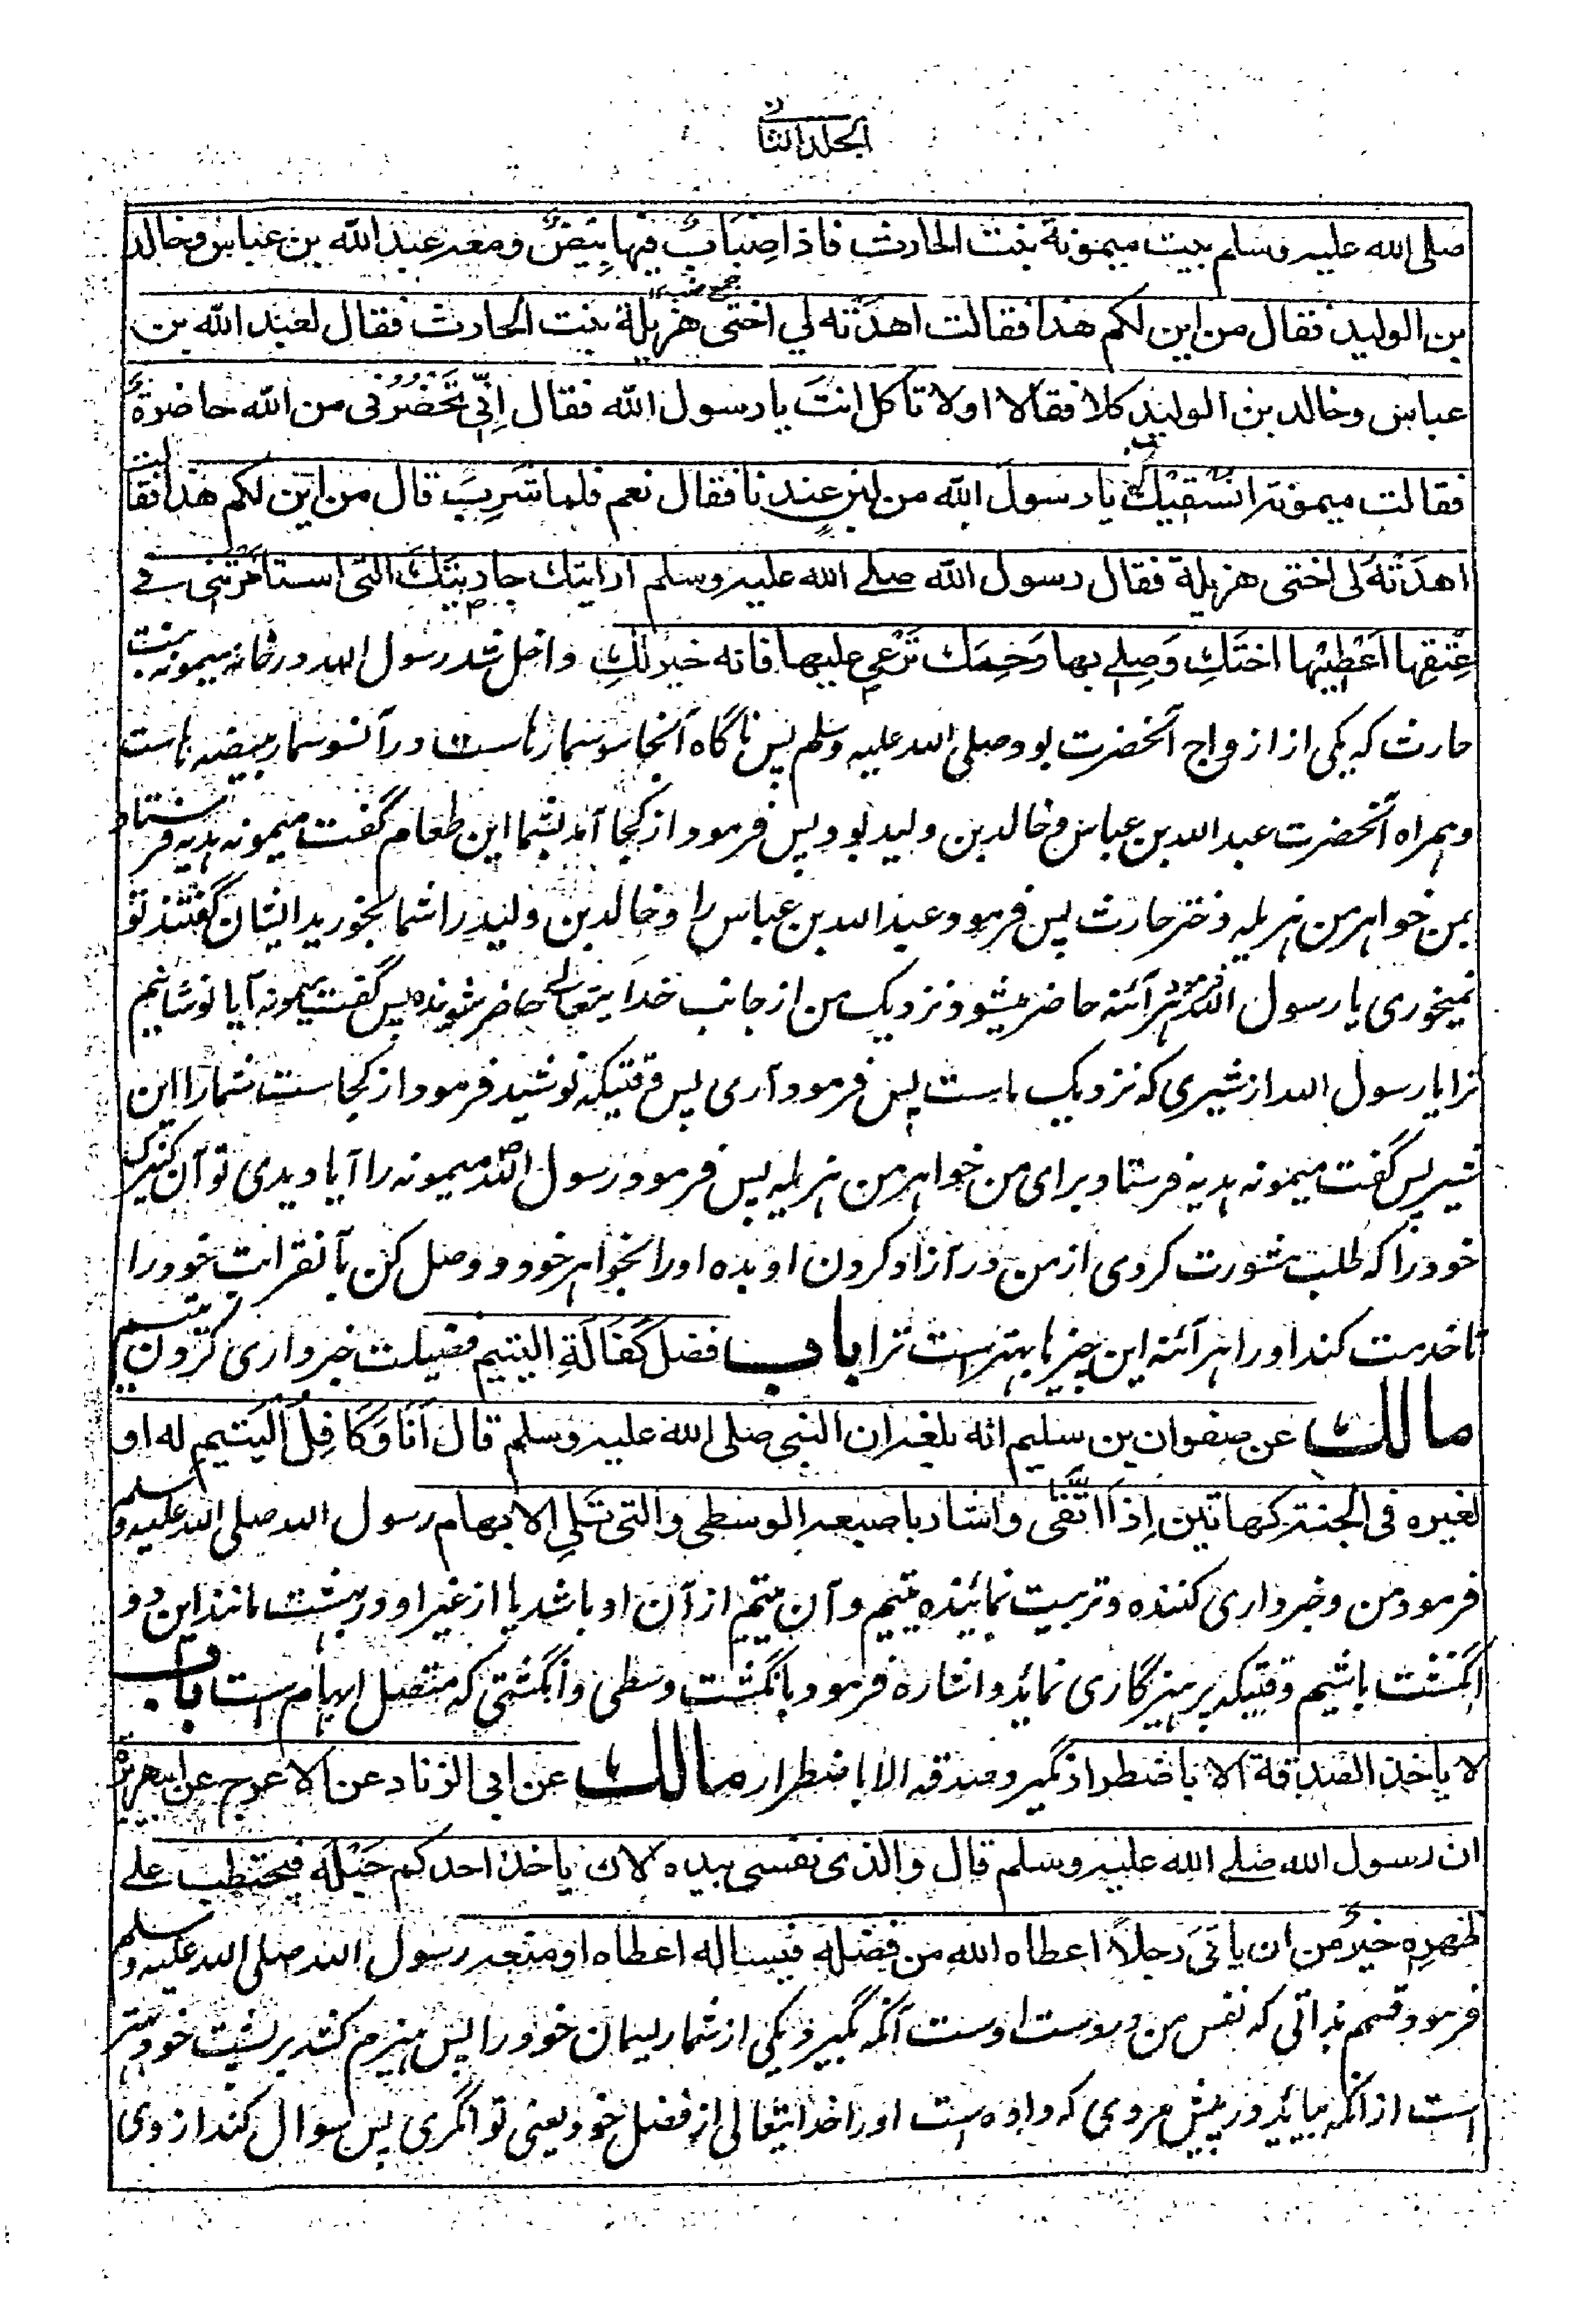 الجلد الثانی
صلی الله علیه وسلم بیت میمونة بنت الحارث فاذا ضِبَابٌ فیها بیضٌ ومعه عبد الله بن عباس وخالد
جمع ضب
بن الولید فقال من این لکم هذا فقالت اهدَتْه لی اختی هزیلة بنت الحارث فقال لعبد الله بن
عباس وخالد بن الولید کلا فقالا اولا تاکل انتَ یا رسول الله فقال اِنّی تَحضُرُنی من الله حاضرةٌ
فقالت میمونة انسقیك یا رسول الله من لبن عندنا فقال نعم فلما شَرِبَ قال من این لکم هذا فقالت
اهدَتْهُ لی اختی هزیلة فقال رسول الله صلے الله علیه وسلم ارایتِك جاریتَكِ التی استامرتِنی فے
عِتقِها اَعْطِیْها اختَكِ وَصِلے بها رَحِمَك تَرْعی علیها فانه خیر لكِ داخل شد رسول الله در خانه میمونه بنت
حارث که یکی از ازواج آنحضرت بود صلی الله علیه وسلم پس ناگاه آنجا سوسمارهاست در آن سوسمار بیضه هاست
وهمراه آنحضرت عبد الله بن عباس وخالد بن ولید بود پس فرمود از کجا آمد بشما این طعام گفت میمونه هدیه فرستاد
بمن خواهر من هزیله دختر حارث پس فرمود عبد الله بن عباس را وخالد بن ولید را شما بخورید ایشان گفتند تو
نمیخوری یا رسول الله فرمود هر آئنه حاضر میشود نزدیک من از جانب خدایتعالی حاضر شونده پس گفت میمونه آیا نوشانیم
ترا یا رسول الله از شیری که نزدیک ماست پس فرمود آری پس وقتیکه نوشید فرمود از کجاست شما را این
شیر پس گفت میمونه هدیه فرستاد برای من خواهر من هزیله پس فرمود رسول الله میمونه را آیا دیدی تو آن کنیزک
خود را که طلب مشورت کردی از من در آزاد کردن او بده او را بخواهر خود و وصل کن بآن قرابت خود را
تا خدمت کند او را هر آئنه این چیزها بهتر ست ترا باب فضل کَفَالَةِ الیتیم فضیلت خبرداری کردن یتیم
مالك عن صفوان بن سلیم انه بلغه ان النبی صلی الله علیه وسلم قال اَنَا وَکَافِلُ الیَتیمِ له او
لغیره فی الجنة کهاتین اِذَا اتَّقی واشار باصبعه الوسطی والتی تَلِی الابهام رسول الله صلی الله علیه وسلم
فرمود من وخبرداری کننده وتربیت نمائنده یتیم وآن یتیم از آن او باشد یا از غیر او در بهشت مانند این دو
انگشت باشیم وقتیکه پرهیزگاری نماید واشاره فرمود بانگشت وسطی وانگشتی که متصل ابهام ست باب
لا یاخذ الصدقة الا باضطرار نگیرد صدقه الا باضطرار مالك عن ابی الزناد عن الاعرج عن ابی هریرة
ان رسول الله صلے الله علیه وسلم قال والذی نفسی بیده لان یاخذ احدکم حَبْلَه فیحتطب علے
ظهرِه خیرٌ من ان یاتیَ رجلاً اعطاه الله من فضله فیساله اعطاه او منعه رسول الله صلی الله علیه وسلم
فرمود قسم بذاتی که نفس من در دست اوست آنکه بگیرد یکی از شما ریسمان خود را پس هیزم کشد بر پشت خود بهتر
است از آنکه بیاید در پیش مردی که داده است او را خدایتعالی از فضل خود یعنی توانگری پس سوال کند از وی